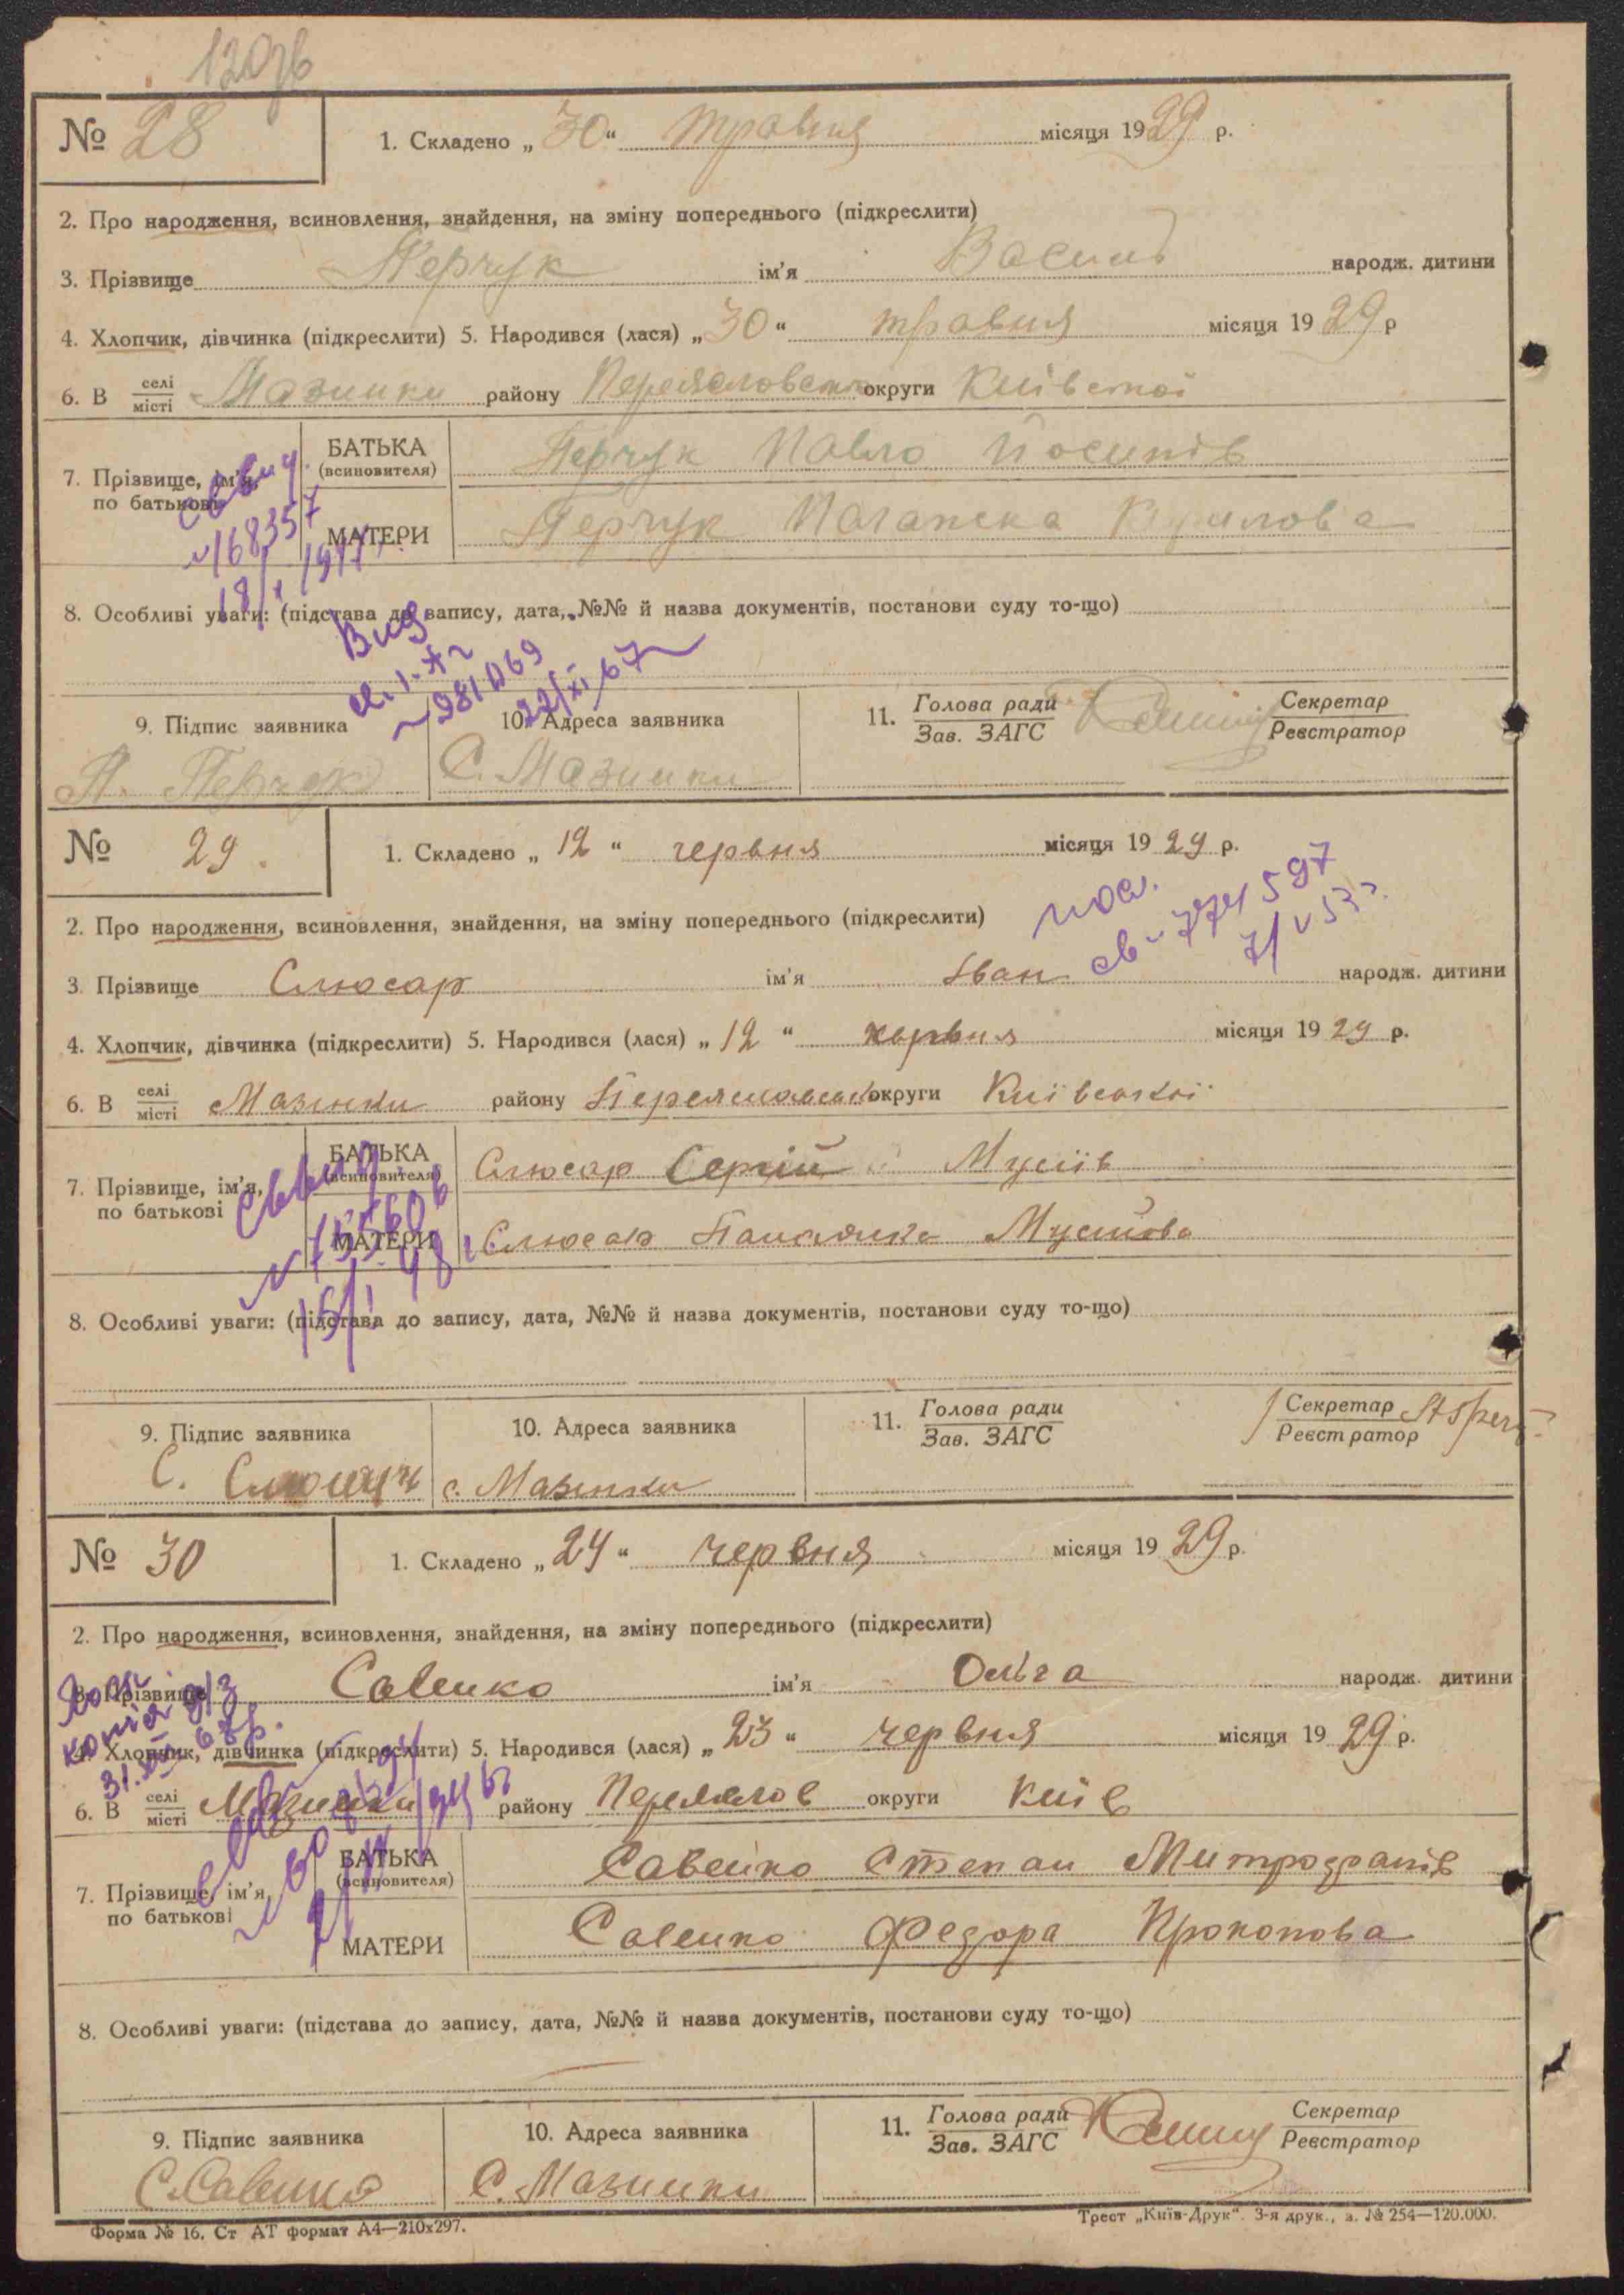 № 28
1. Складено „ 30 “ травня місяця 1929 р.
2. Про народження, всиновлення, знайдення, на зміну попереднього (підкреслити)
3. Прізвище Перчук ім'я Василь народж. дитини
4. Хлопчик, дівчинка (підкреслити) 5. Народився (лася) „ 30 “ травня місяця 19 29 р
6. В селі/місті Мазинки району Переясловськ округи Київської
7. Прізвище, ім'я, по батькові
БАТЬКА (всиновителя) Перчук Павло Йосипів
МАТЕРИ Перчук Палажка
свид
№168357
8. Особливі уваги: (підстава до запису, дата, №№ й назва документів, постанови суду то-що)
Вид
22/XI 67
9. Підпис заявника
П. Перчук
10. Адреса заявника
С. Мазинки
11. Голова ради
Зав. ЗАГС
Секретар
Реєстратор
№ 29.
1. Складено „ 12 “ червня місяця 19 29 р.
2. Про народження, всиновлення, знайдення, на зміну попереднього (підкреслити)
3. Прізвище Слюсар ім'я Іван народж. дитини
4. Хлопчик, дівчинка (підкреслити) 5. Народився (лася) „ 12 “ червня місяця 19 29 р.
6. В селі/місті Мазінки району Переяславськ округи Київської
7. Прізвище, ім'я, по батькові
БАТЬКА (всиновителя) Слюсар Сергій Мусіїв
МАТЕРИ Слюсар
8. Особливі уваги: (підстава до запису, дата, №№ й назва документів, постанови суду то-що)
9. Підпис заявника
С.
10. Адреса заявника
с. Мазінки
11. Голова ради
Зав. ЗАГС
Секретар
Реєстратор
№ 30
1. Складено „ 24 “ червня місяця 19 29 р.
2. Про народження, всиновлення, знайдення, на зміну попереднього (підкреслити)
3. Прізвище Савенко ім'я Ольга народж. дитини
4. Хлопчик, дівчинка (підкреслити) 5. Народився (лася) „ 23 “ червня місяця 19 29 р.
6. В селі/місті Мазинки району Переяслов округи Київ
7. Прізвище, ім'я, по батькові
БАТЬКА (всиновителя) Савенко Степан Митрофанів
МАТЕРИ Савенко Федора Прокопова
8. Особливі уваги: (підстава до запису, дата, №№ й назва документів, постанови суду то-що)
9. Підпис заявника
С. Савенко
10. Адреса заявника
С. Мазинки
11. Голова ради
Зав. ЗАГС
Секретар
Реєстратор
Форма № 16. Ст АТ формат А4—210x297.
Трест „Київ-Друк“. 3-я друк., з. № 254—120.000.